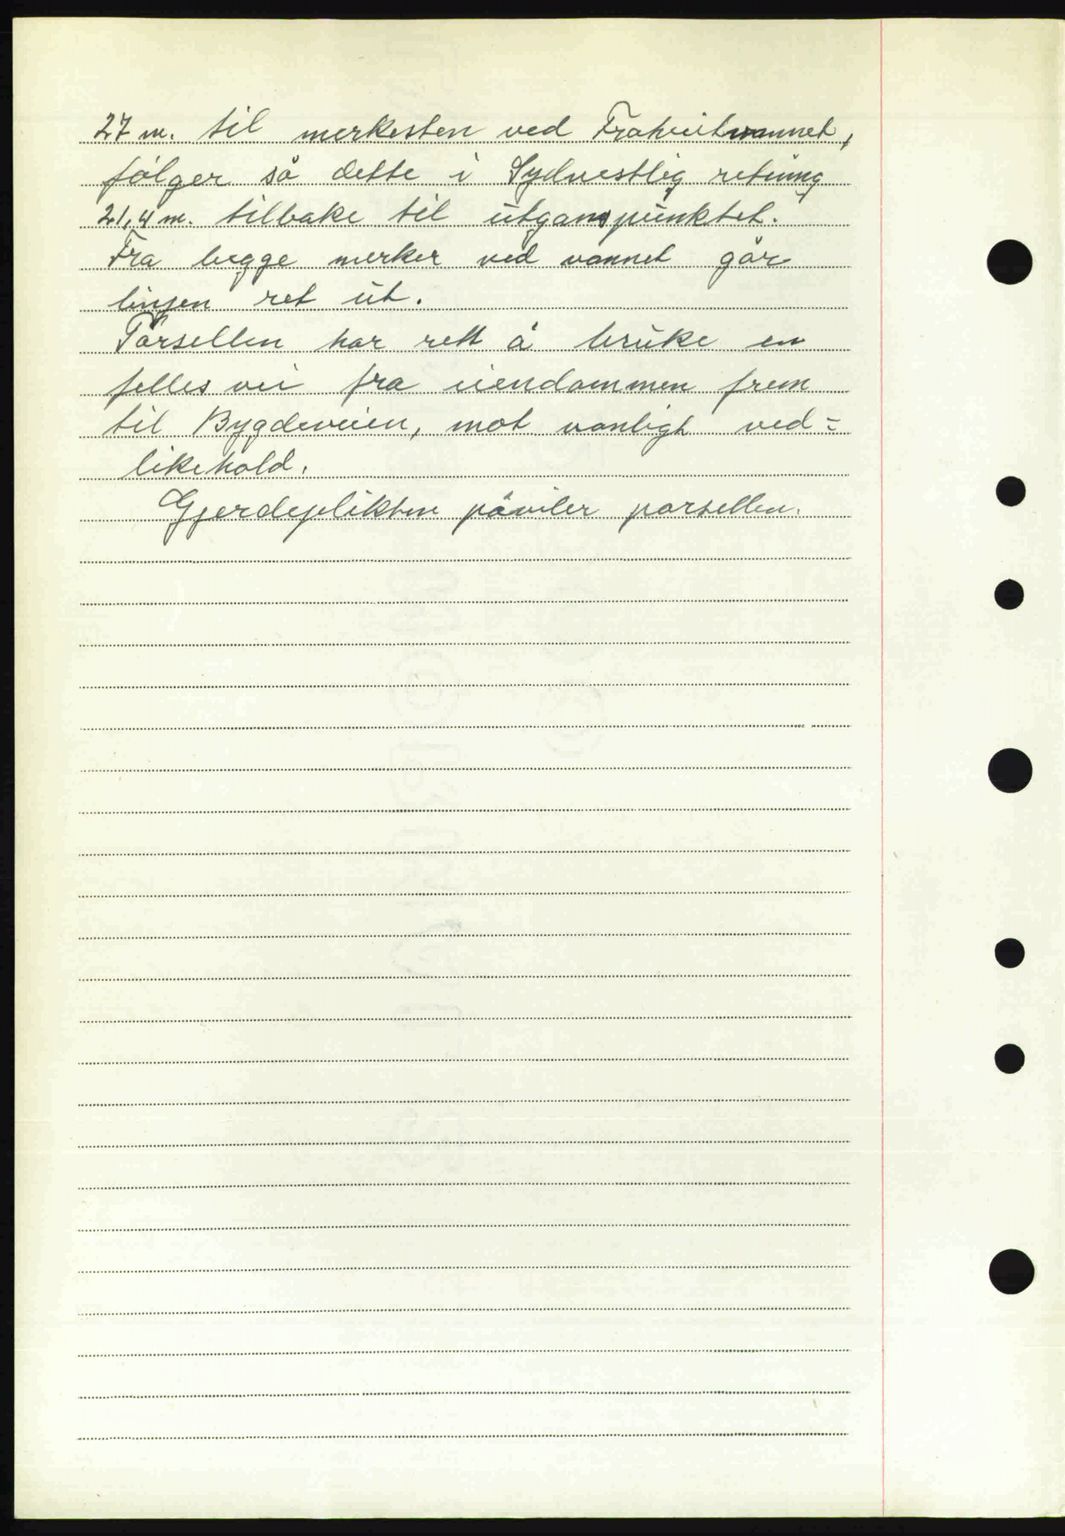 27 m. til merkesten ved Fratveitvannet,
følger så dette i Sydvestlig retning
21,4 m. tilbake til utganspunktet.
Fra begge merker ved vannet går
linjen ret ut.
Parsellen har rett å bruke en
felles vei fra eiendommen frem
til Bygdeveien, mot vanligt ved=
likehold.
Gjerdeplikten påviler parsellen.